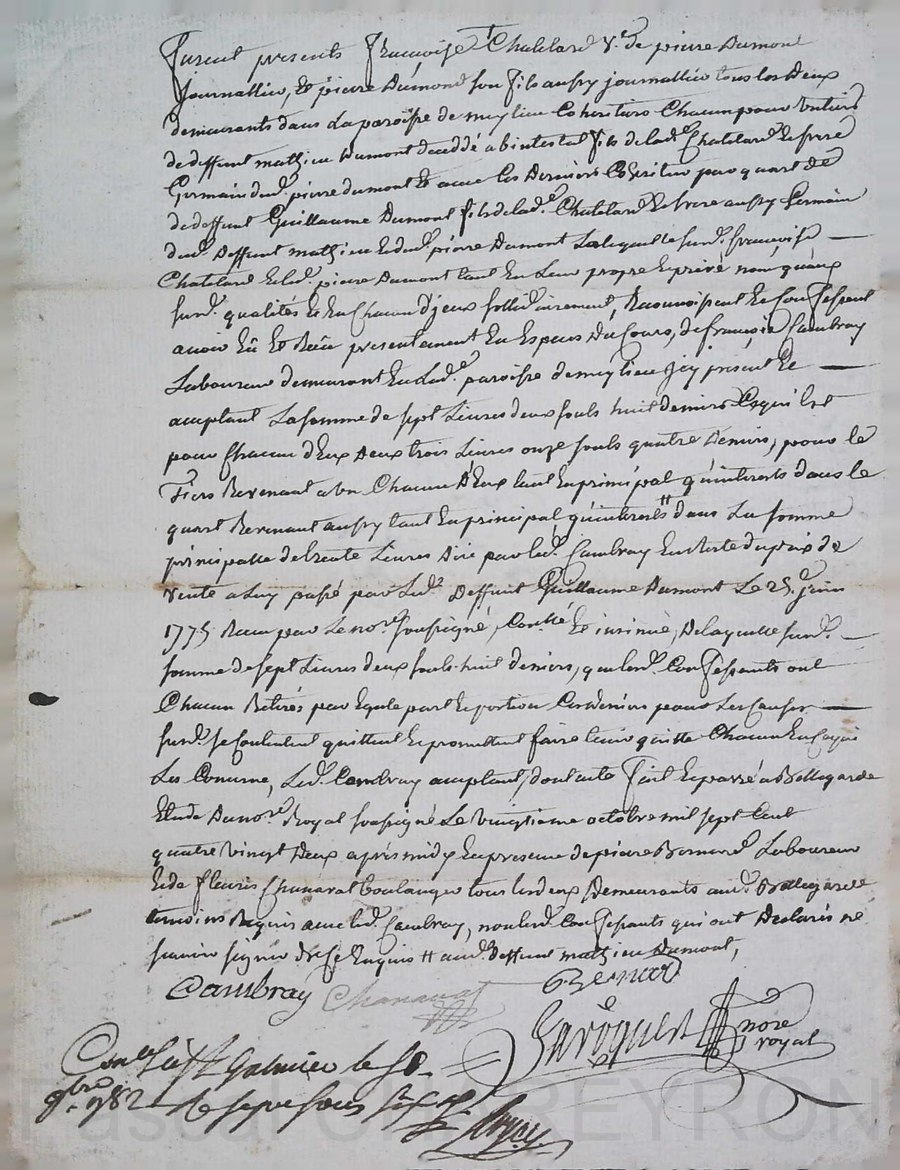 furent presents françoise Chatelard v.e de pierre Dumont
journallier, Et pierre Dumond son fils aussy journallier tous les deux
demeurants dans La paroisse de meylieu Coheritiers Chacun pour un tiers
de deffunt mathieu Dumont deceddé abintestat fils de lad.e Chatelard Et frere
Germain dud. pierre dumont Et avec Ces Derniers Coheritier par quart de
de deffunt Guillaume Dumont fils de lad.e Chatelard Et frere aussy Germain
dud. Deffunt mathieu Et dud. pierre Dumont Lesquelle susd. françoise
Chatelard Et led. pierre Dumont tant En Leur propre Et privé nom, qu'aux
susd. qualités Et En Chacun d'jeux sollidairement, Reconnoissent Et Confessent
avoir Eû Et Reçu presentement En Especes Du Cours, de françois Cambray
Laboureur demeurant En Lad.e paroisse de meylieu jcy présent Et
acceptant La somme de sept Livres deux souls huit deniers Ce qui Est
pour Chacun d'Eux Deux trois Livres onze souls quatre Deniers, pour le
Tiers Revenant a un Chacun d'Eux tant En principal qu'interests dans le
quart Revenant aussy tant En principal, qu'interests tt dans La somme
principalle de trente Livres Due par led. Cambray En Reste du prix de
vente a Luy passé par Led. Deffunt Guillaume Dumont Le 25.e juin
1775 Reçu par Le no.re soussigné, Con.llé Et insinué, De laquelle susd.
somme de sept Livres deux souls huit deniers, que lesd. Confessants ont
Chacun Retirés par Egale part Et portion Ces deniers pour Les Causes
susd. se Contentent quittent Et promettent faire tenir quitte Chacun En
Les Concerne, Led. Cambray acceptant, dont acte fait Et passé a Bellegarde
Etude Du no.re Royal soussigné Le vingtieme octobre mil sept Cent
quatre vingt Deux après midy En presence de pierre Bernard Laboureur
Et de fleuris Chanavat boulanger tous les deux Demeurants aud. Bellegarde
temoins Requis avec led. Cambray, non lesd. Confessants qui ont Declarés ne
sçavoir signer de Ce Enquis tt aud. deffunt mathieu Dumont,
Cambray Chanavat Bernard
nore
royal
Con.llé à St Galmier le 30.
1782